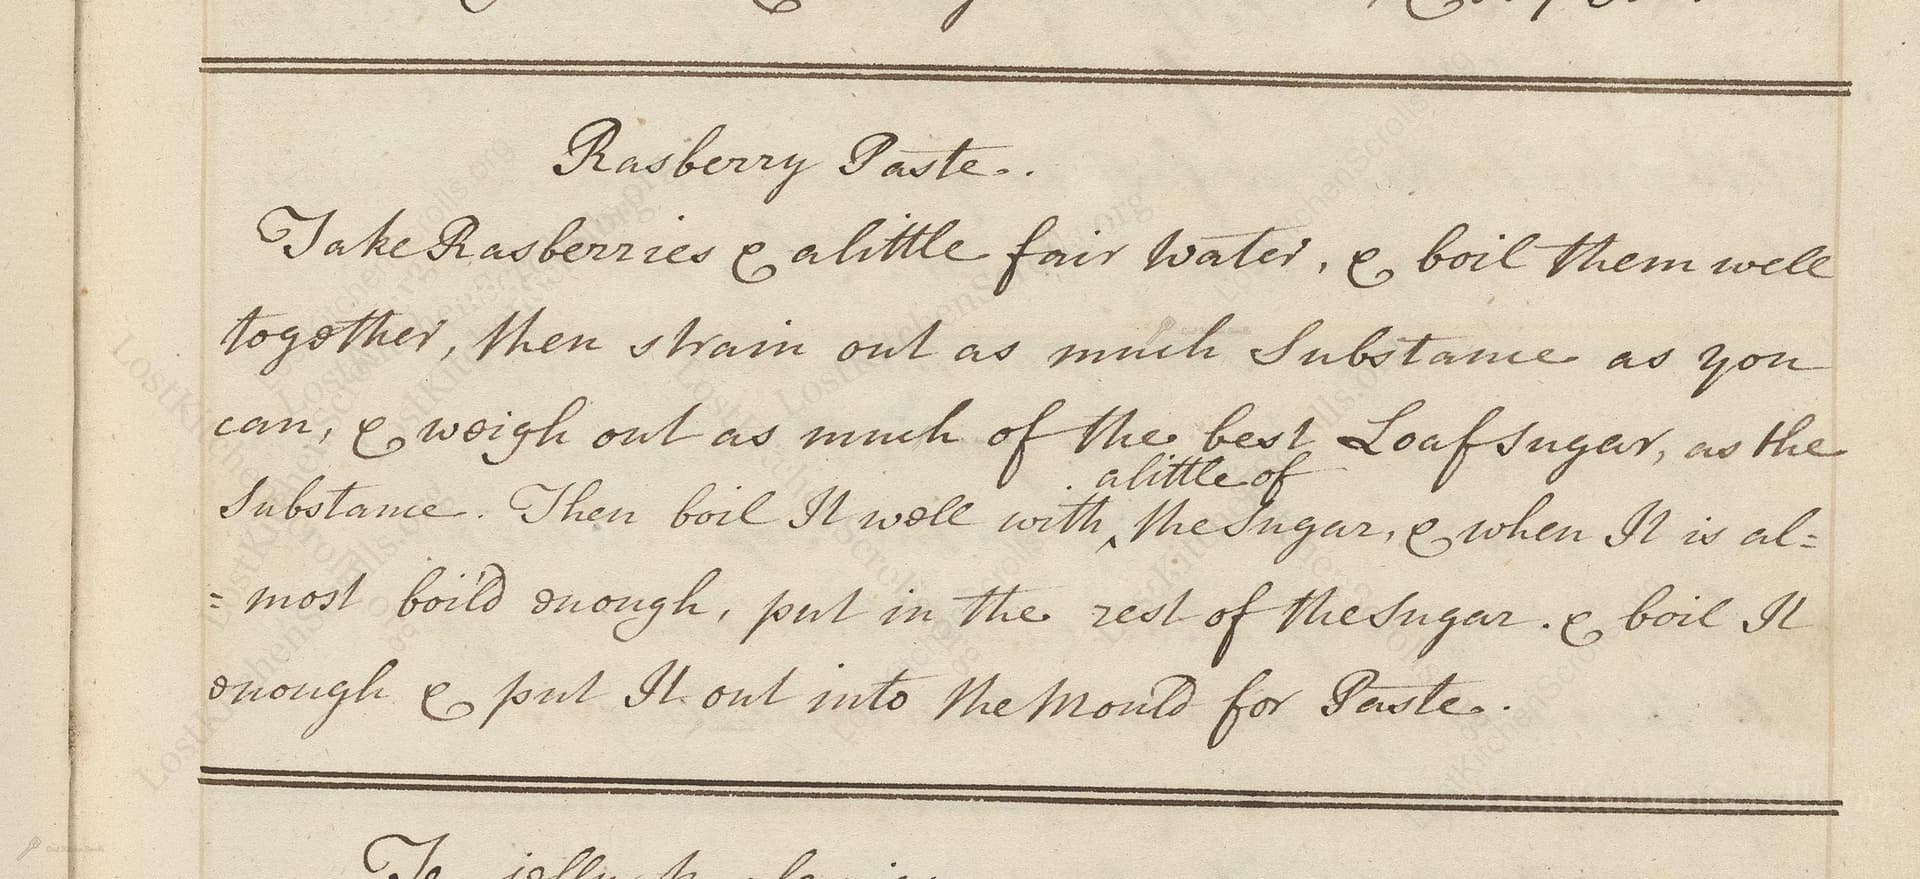 Rasberry Paste.
Take Rasberries & alittle fair Water, & boil them well
together, then strain out as much Substance as you
can, & weigh out as much of the best Loaf sugar, as the
alittle of
Substance. Then boil It well with ‸ the Sugar, & when It is al=
= most boil'd enough, put in the rest of the Sugar. & boil It
enough & put It out into the Mould for Paste.
To jelly